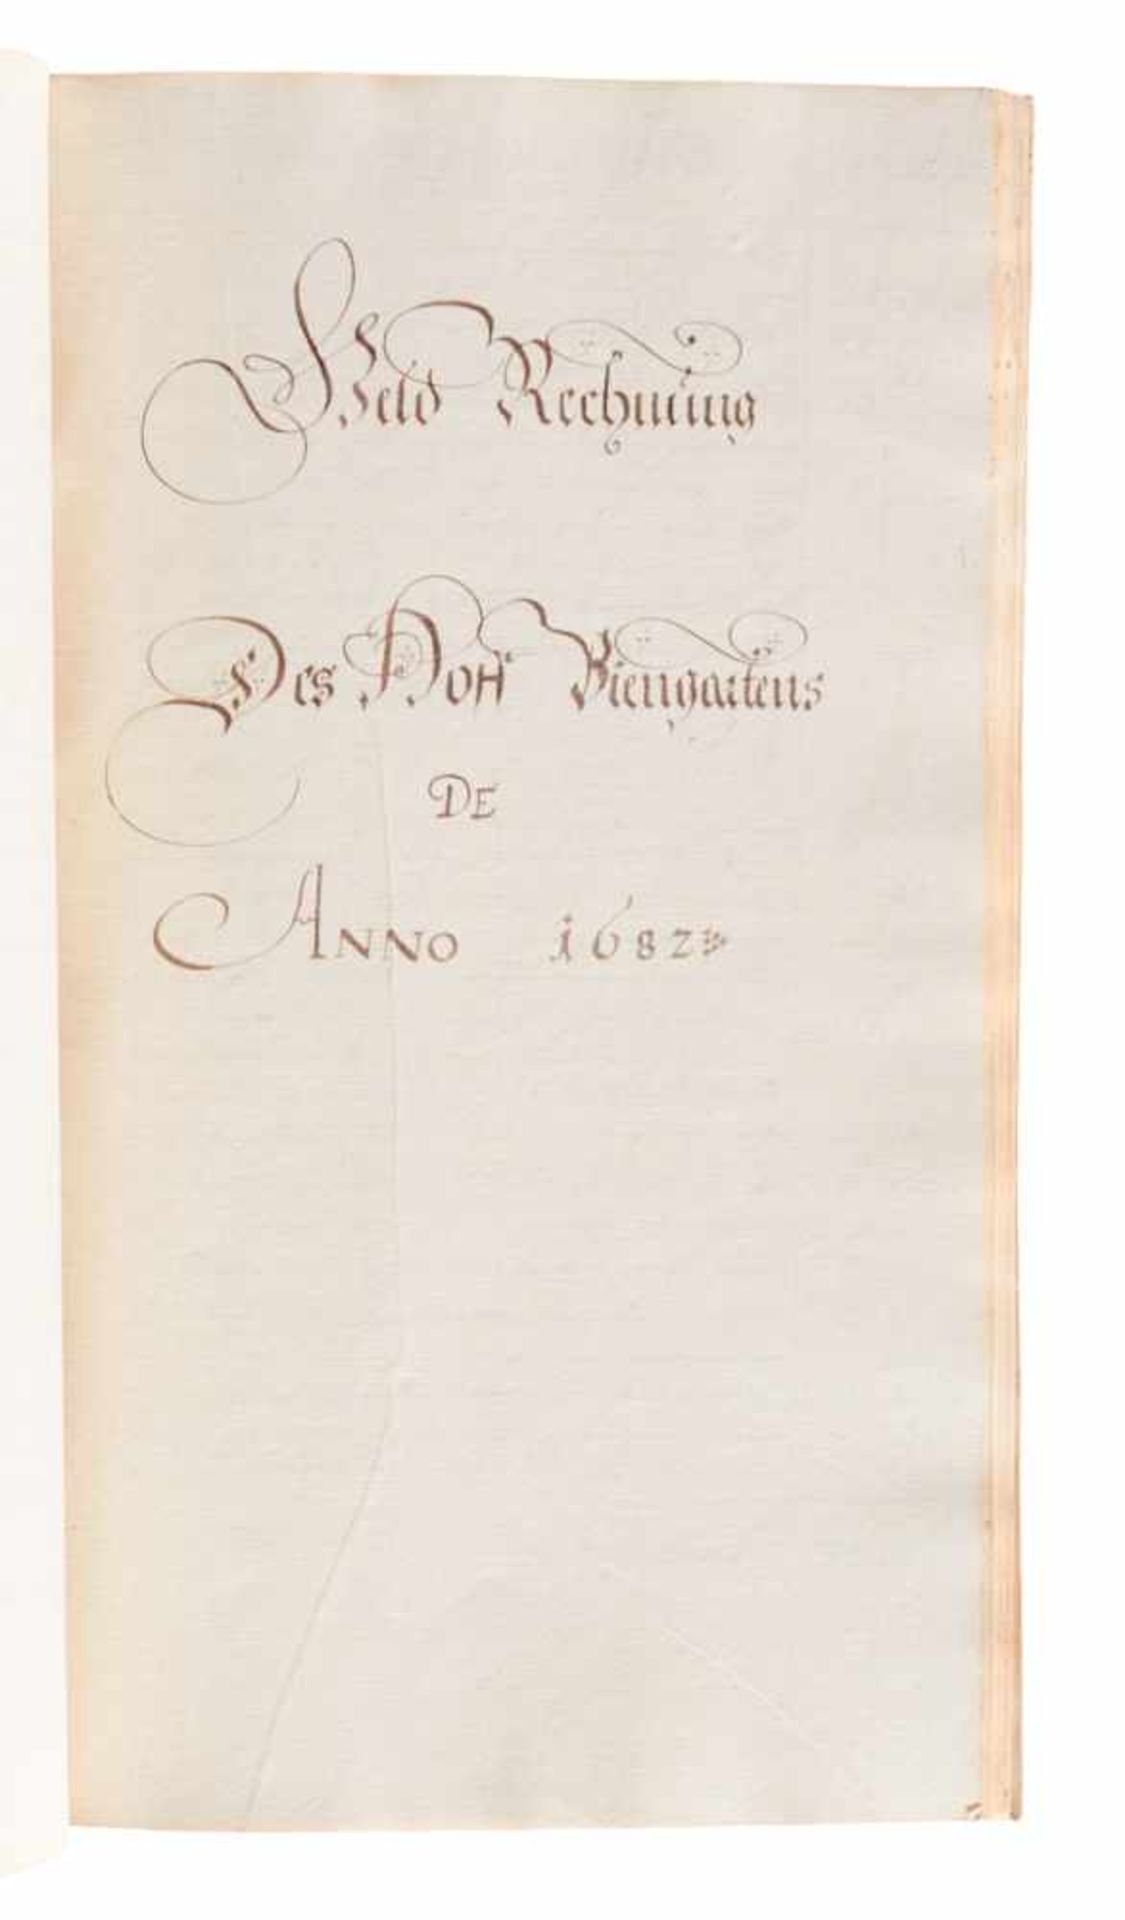 Geld Rechnung
Des Hoff Biengartens
DE
ANNO 1682